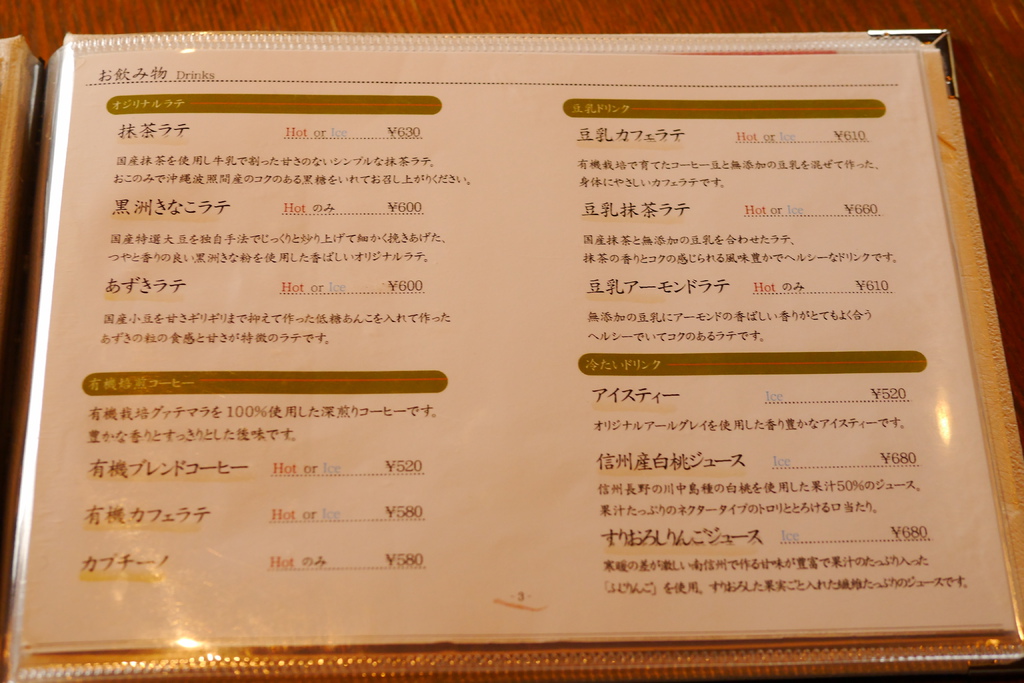 お飲み物 Drinks
オリジナルラテ
抹茶ラテ Hot or Ice ¥630
国産抹茶を使用し牛乳で割った甘さのないシンプルな抹茶ラテ。
おこのみで沖縄波照間産のコクのある黒糖をいれてお召し上がりください。
黒洲きなこラテ Hot のみ ¥600
国産特選大豆を独自手法でじっくりと炒り上げて細かく挽きあげた、
つやと香りの良い黒洲きな粉を使用した香ばしいオリジナルラテ。
あずきラテ Hot or Ice ¥600
国産小豆を甘さギリギリまで抑えて作った低糖あんこを入れて作った
あずきの粒の食感と甘さが特徴のラテです。
有機焙煎コーヒー
有機栽培グァテマラを100%使用した深煎りコーヒーです。
豊かな香りとすっきりとした後味です。
有機ブレンドコーヒー Hot or Ice ¥520
有機カフェラテ Hot or Ice ¥580
カプチーノ Hot のみ ¥580
豆乳ドリンク
豆乳カフェラテ Hot or Ice ¥610
有機栽培で育てたコーヒー豆と無添加の豆乳を混ぜて作った、
身体にやさしいカフェラテです。
豆乳抹茶ラテ Hot or Ice ¥660
国産抹茶と無添加の豆乳を合わせたラテ、
抹茶の香りとコクの感じられる風味豊かでヘルシーなドリンクです。
豆乳アーモンドラテ Hot のみ ¥610
無添加の豆乳にアーモンドの香ばしい香りがとてもよく合う
ヘルシーでいてコクのあるラテです。
冷たいドリンク
アイスティー Ice ¥520
オリジナルアールグレイを使用した香り豊かなアイスティーです。
信州産白桃ジュース Ice ¥680
信州長野の川中島種の白桃を使用した果汁50%のジュース。
果汁たっぷりのネクタータイプのトロリととろける口当たり。
すりおろしりんごジュース Ice ¥680
寒暖の差が激しい南信州で作る甘味が豊富で果汁のたっぷり入った
「ふじりんご」を使用。すりおろした果実ごと入れた繊維たっぷりのジュースです。
- 3 -